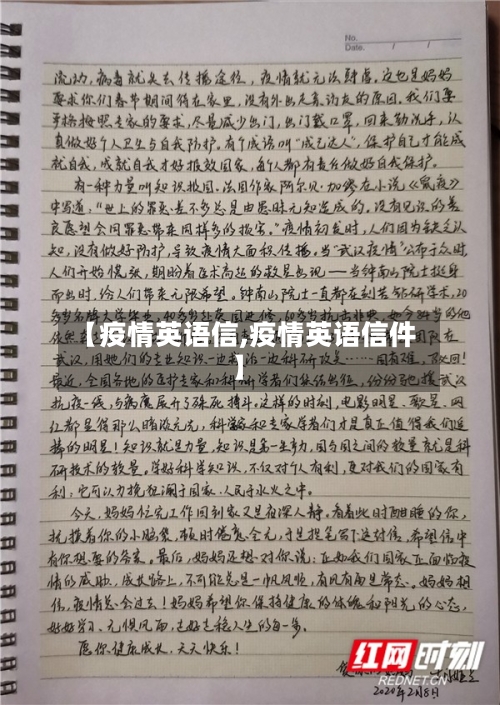 No.
Date. / /
流动,病毒就失去传播途径,疫情就无法肆虐。这也是妈妈
要求你们春节期间待在家里,没有外出走亲访友的原因。我们要
严格按照专家的要求,尽量减少出门,出门戴口罩,回来勤洗手,认
真做好个人卫生与自我防护。有个成语叫“成己达人”,保护自己才能成
就自我,成就自我才好报效国家,每个人都有责任做好自我保护。
有一种力量叫知识救国。法国作家阿尔贝·加缪在小说《鼠疫》
中写道:“世上的罪恶差不多总是由愚昧无知造成的。没有见识的善
良愿望会同罪恶带来同样多的损害。”疫情初发时,人们因为缺乏认
知,没有做好防护,导致疫情大面积传播。当“武汉疫情”公布于众时,
人们开始慌张,期盼着医术高超的救星出现——当钟南山院士挺身
而出时,给人们带来无限希望。钟南山院士一直都在刻苦钻研学术,20
【疫情英语信,疫情英语信件
】
武汉,用她们的专业知识一边
最近,全国各地的医护专家和科研学者们集结出征,纷纷驰援武汉
抗疫一线,与病魔展开了殊死搏斗。这样的时刻,电影明星、歌星、网
红都显得那么暗淡无光,科学家和专家学者们才是真正值得我们追
捧的明星!知识就是力量,知识是第一生产力,国与国之间的较量就是科
研技术的较量。学好科学知识,不仅对个人有利,更对我们的国家有
利;它可以力挽狂澜于国家、人民于水火之中。
今天,妈妈忙完工作回到家又是夜深人静。看着此时酣睡的你,
抚摸着你的小脑袋,顿时倦意全无,于是提笔写下这封信,希望信中
有你想要的答案。最后,妈妈还想对你说:正如我们国家正面临疫
情的威胁,成长路上,不可能总是一帆风顺,有风有雨是常态。妈妈相
信,疫情总会过去!妈妈希望你保持健康的体魄和阳光的心态,
好好学习,无惧风雨,走好走稳人生的每一步。
愿你健康成长,天天快乐!
红网时刻
REDNET.CN
2020年2月8日